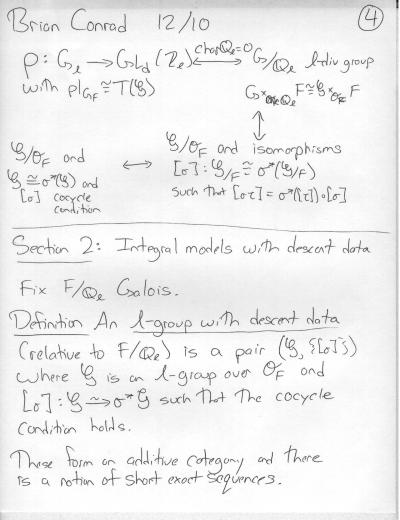 Brian Conrad 12/10 ④
ρ: G_ℓ → GL_d(Z_ℓ) ⟷ G/Q_ℓ ℓ-div group
char Q_ℓ=0
with ρ|_{G_F} ≅ T(𝒢)
G ×_{Q_ℓ} F ≅ 𝒢 ×_{O_F} F
↕
𝒢/O_F and ⟷ 𝒢/O_F and isomorphisms
𝒢 ≅ σ*(𝒢) and [σ]: 𝒢/F ≅ σ*(𝒢/F)
[σ] cocycle such that [στ] = σ*([τ])∘[σ]
condition
Section 2: Integral models with descent data
Fix F/Q_ℓ Galois.
Definition An ℓ-group with descent data
(relative to F/Q_ℓ) is a pair (𝒢, {[σ]})
where 𝒢 is an ℓ-group over O_F and
[σ]: 𝒢 ≅→ σ*𝒢 such that the cocycle
condition holds.
These form an additive category and there
is a notion of short exact sequences.